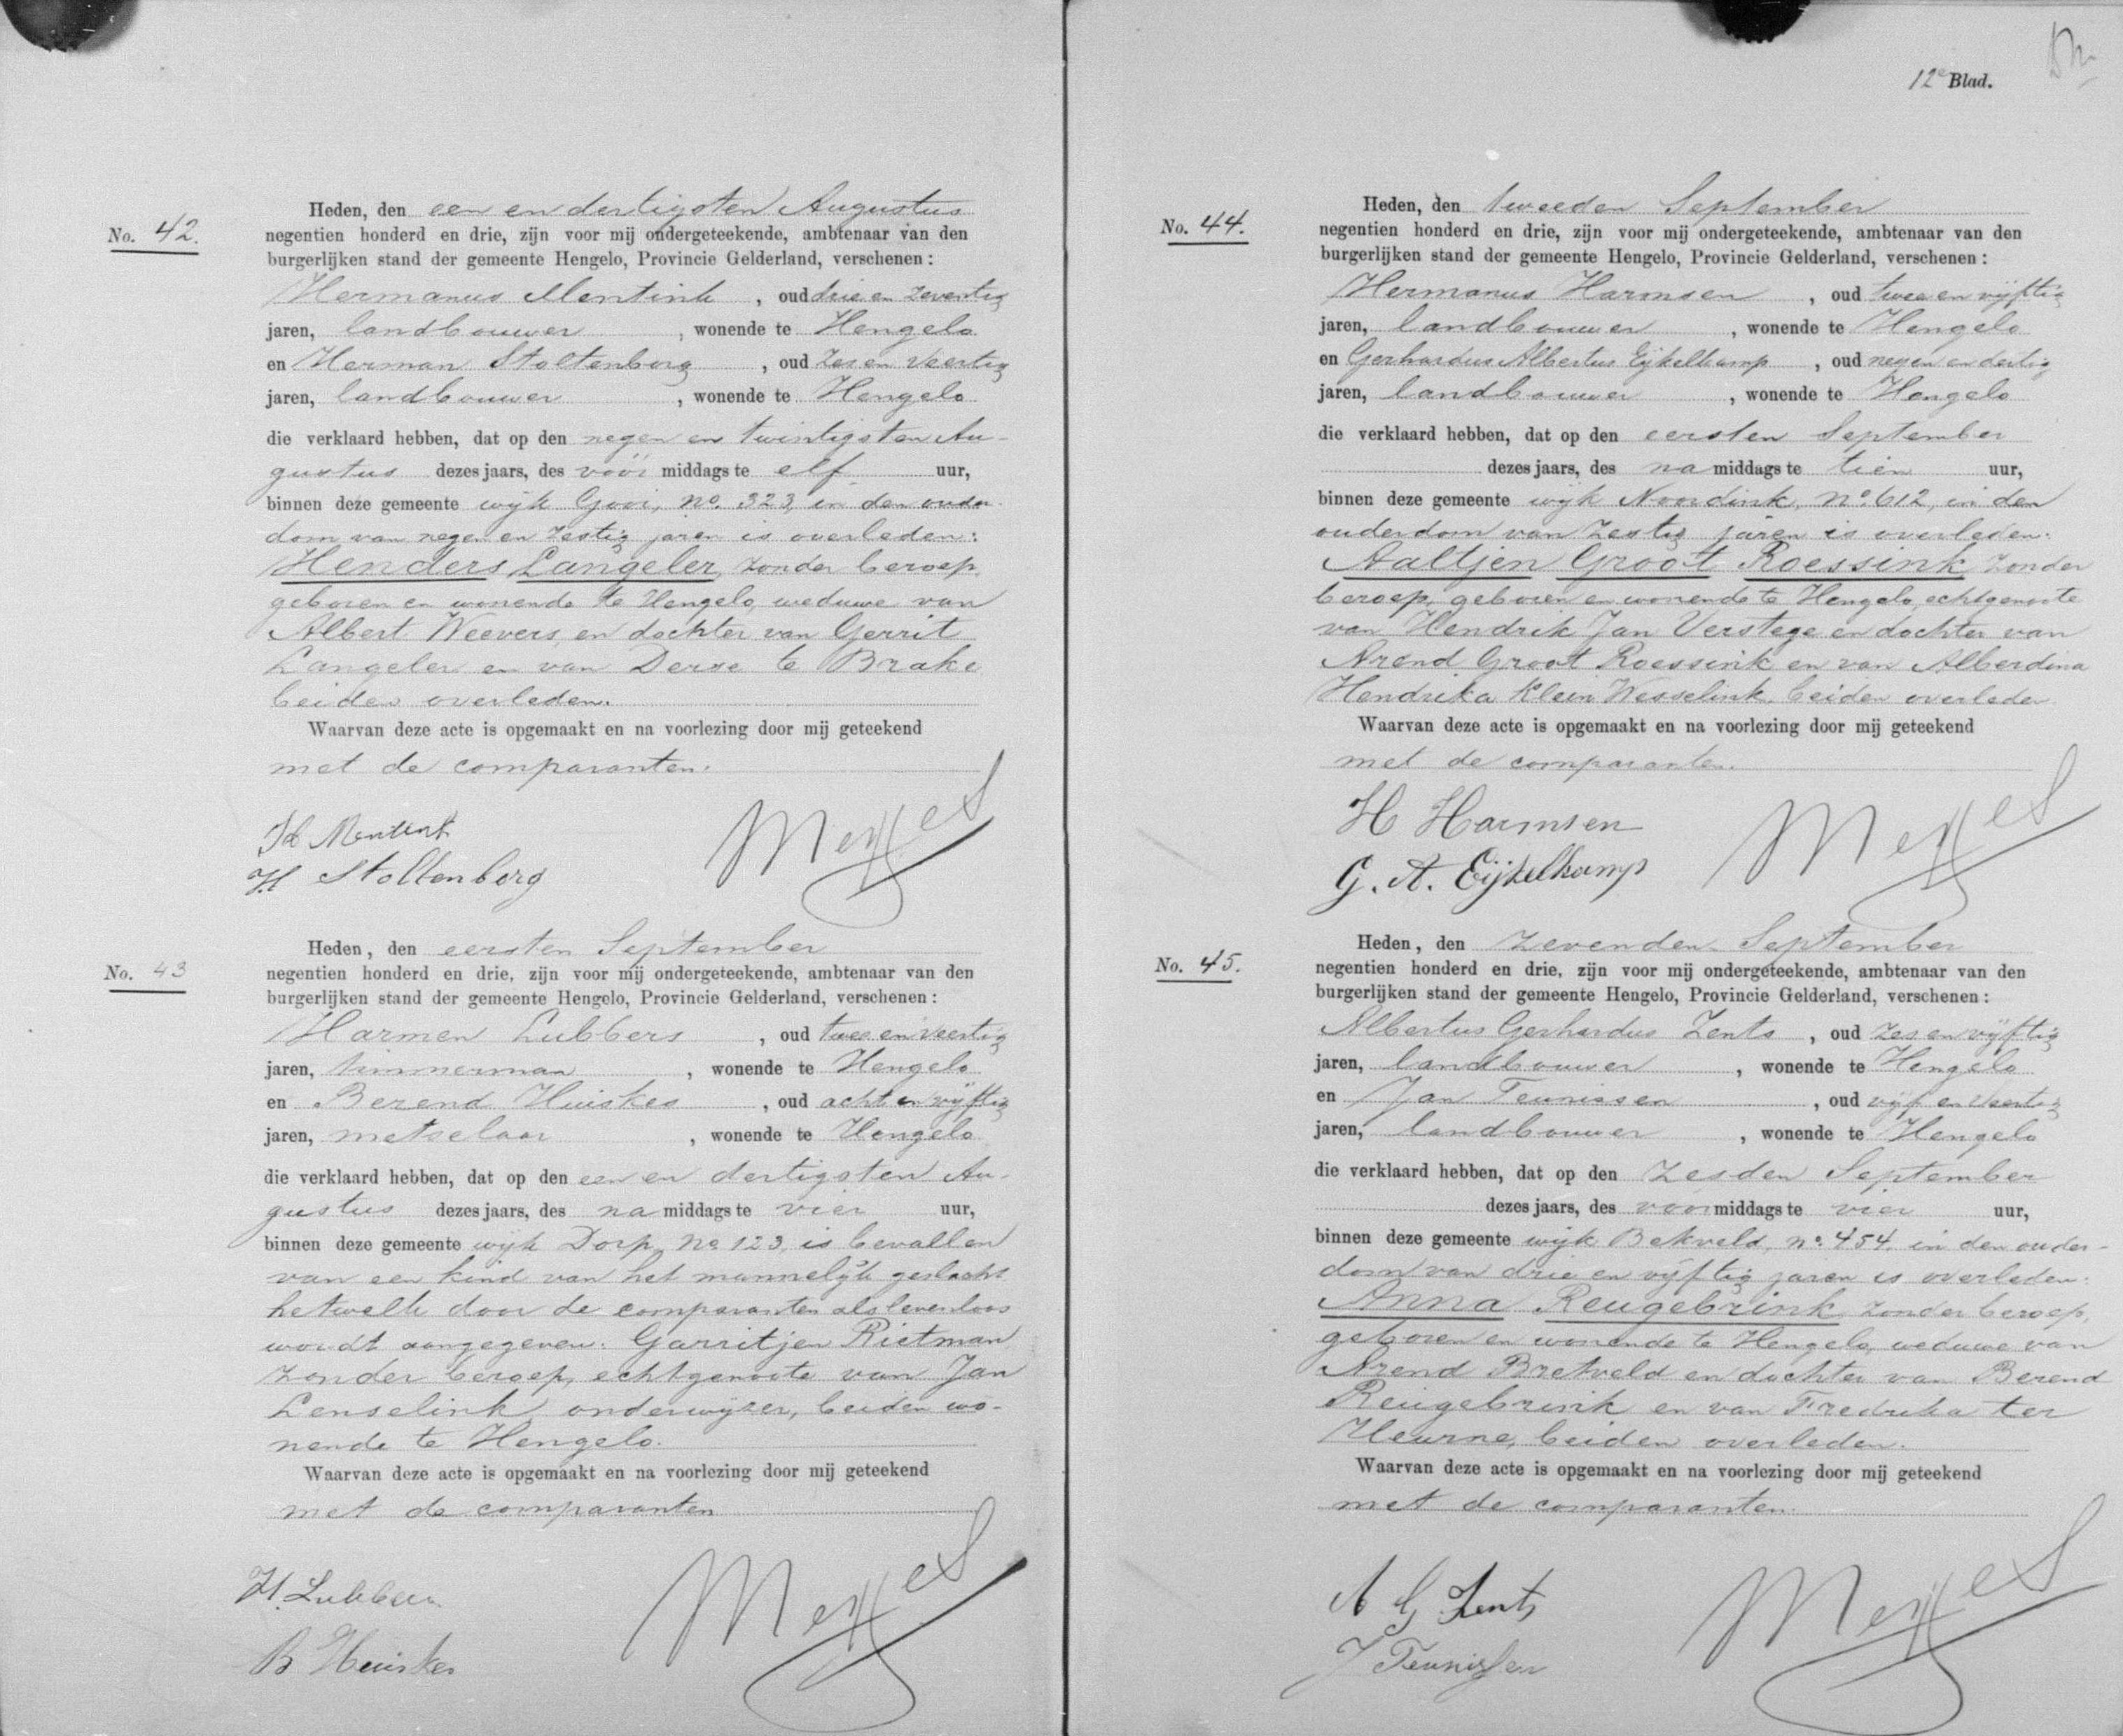 No. 42.
Heden, den een en dertigsten Augustus
negentien honderd en drie, zijn voor mij ondergeteekende, ambtenaar van den
burgerlijken stand der gemeente Hengelo, Provincie Gelderland, verschenen:
Hermanus Mentink, oud drie en zeventig
jaren, landbouwer, wonende te Hengelo
en Herman Stoltenborg, oud zes en veertig
jaren, landbouwer, wonende te Hengelo
die verklaard hebben, dat op den negen en twintigsten Au-
gustus dezes jaars, des voor middags te elf uur,
binnen deze gemeente wijk Gooi, no. 323, in den ouder-
dom van negen en zestig jaren is overleden:
Henders Langeler, zonder beroep,
geboren en wonende te Hengelo, weduwe van
Albert Weevers, en dochter van Gerrit
Langeler en van Derse te Brake
beiden overleden.
Waarvan deze acte is opgemaakt en na voorlezing door mij geteekend
met de comparanten.
H Mentink
H Stoltenborg
No. 43
Heden, den eersten September
negentien honderd en drie, zijn voor mij ondergeteekende, ambtenaar van den
burgerlijken stand der gemeente Hengelo, Provincie Gelderland, verschenen:
Harmen Lubbers, oud twee en veertig
jaren, timmerman, wonende te Hengelo
en Berend Huiskes, oud acht en vijftig
jaren, metselaar, wonende te Hengelo
die verklaard hebben, dat op den een en dertigsten Au-
gustus dezes jaars, des na middags te vier uur,
binnen deze gemeente wijk Dorp, no 123, is bevallen
van een kind van het mannelijk geslacht
hetwelk door de comparanten als levenloos
wordt aangegeven: Garritjen Rietman
zonder beroep, echtgenoote van Jan
Lenselink, onderwijzer, beiden wo-
nende te Hengelo.
Waarvan deze acte is opgemaakt en na voorlezing door mij geteekend
met de comparanten
H. Lubbers
B Huiskes
12e Blad.
No. 44.
Heden, den tweeden September
negentien honderd en drie, zijn voor mij ondergeteekende, ambtenaar van den
burgerlijken stand der gemeente Hengelo, Provincie Gelderland, verschenen:
Hermanus Harmsen, oud twee en vijftig
jaren, landbouwer, wonende te Hengelo
en Gerhardus Albertus Eijkelkamp, oud negen en dertig
jaren, landbouwer, wonende te Hengelo
die verklaard hebben, dat op den eersten September
dezes jaars, des na middags te tien uur,
binnen deze gemeente wijk Noordink, no. 612, in den
ouderdom van zestig jaren is overleden:
Aaltjen Groot Roessink zonder
beroep, geboren en wonende te Hengelo, echtgenoote
van Hendrik Jan Verstege en dochter van
Arend Groot Roessink en van Alberdina
Hendrika Klein Wesselink, beiden overleden.
Waarvan deze acte is opgemaakt en na voorlezing door mij geteekend
met de comparanten.
H Harmsen
G. A. Eijkelkamp
No. 45.
Heden, den zevenden September
negentien honderd en drie, zijn voor mij ondergeteekende, ambtenaar van den
burgerlijken stand der gemeente Hengelo, Provincie Gelderland, verschenen:
Albertus Gerhardus Zents, oud zes en vijftig
jaren, landbouwer, wonende te Hengelo
en Jan Teunissen, oud vijf en veertig
jaren, landbouwer, wonende te Hengelo
die verklaard hebben, dat op den zesden September
dezes jaars, des voor middags te vier uur,
binnen deze gemeente wijk Bekveld, no. 454, in den ouder-
dom van drie en vijftig jaren is overleden:
Anna Reugebrink, zonder beroep,
geboren en wonende te Hengelo, weduwe van
Arend Bretveld en dochter van Berend
Reugebrink en van Fredrika ter
Heurne, beiden overleden.
Waarvan deze acte is opgemaakt en na voorlezing door mij geteekend
met de comparanten.
A G Zents
J Teunissen